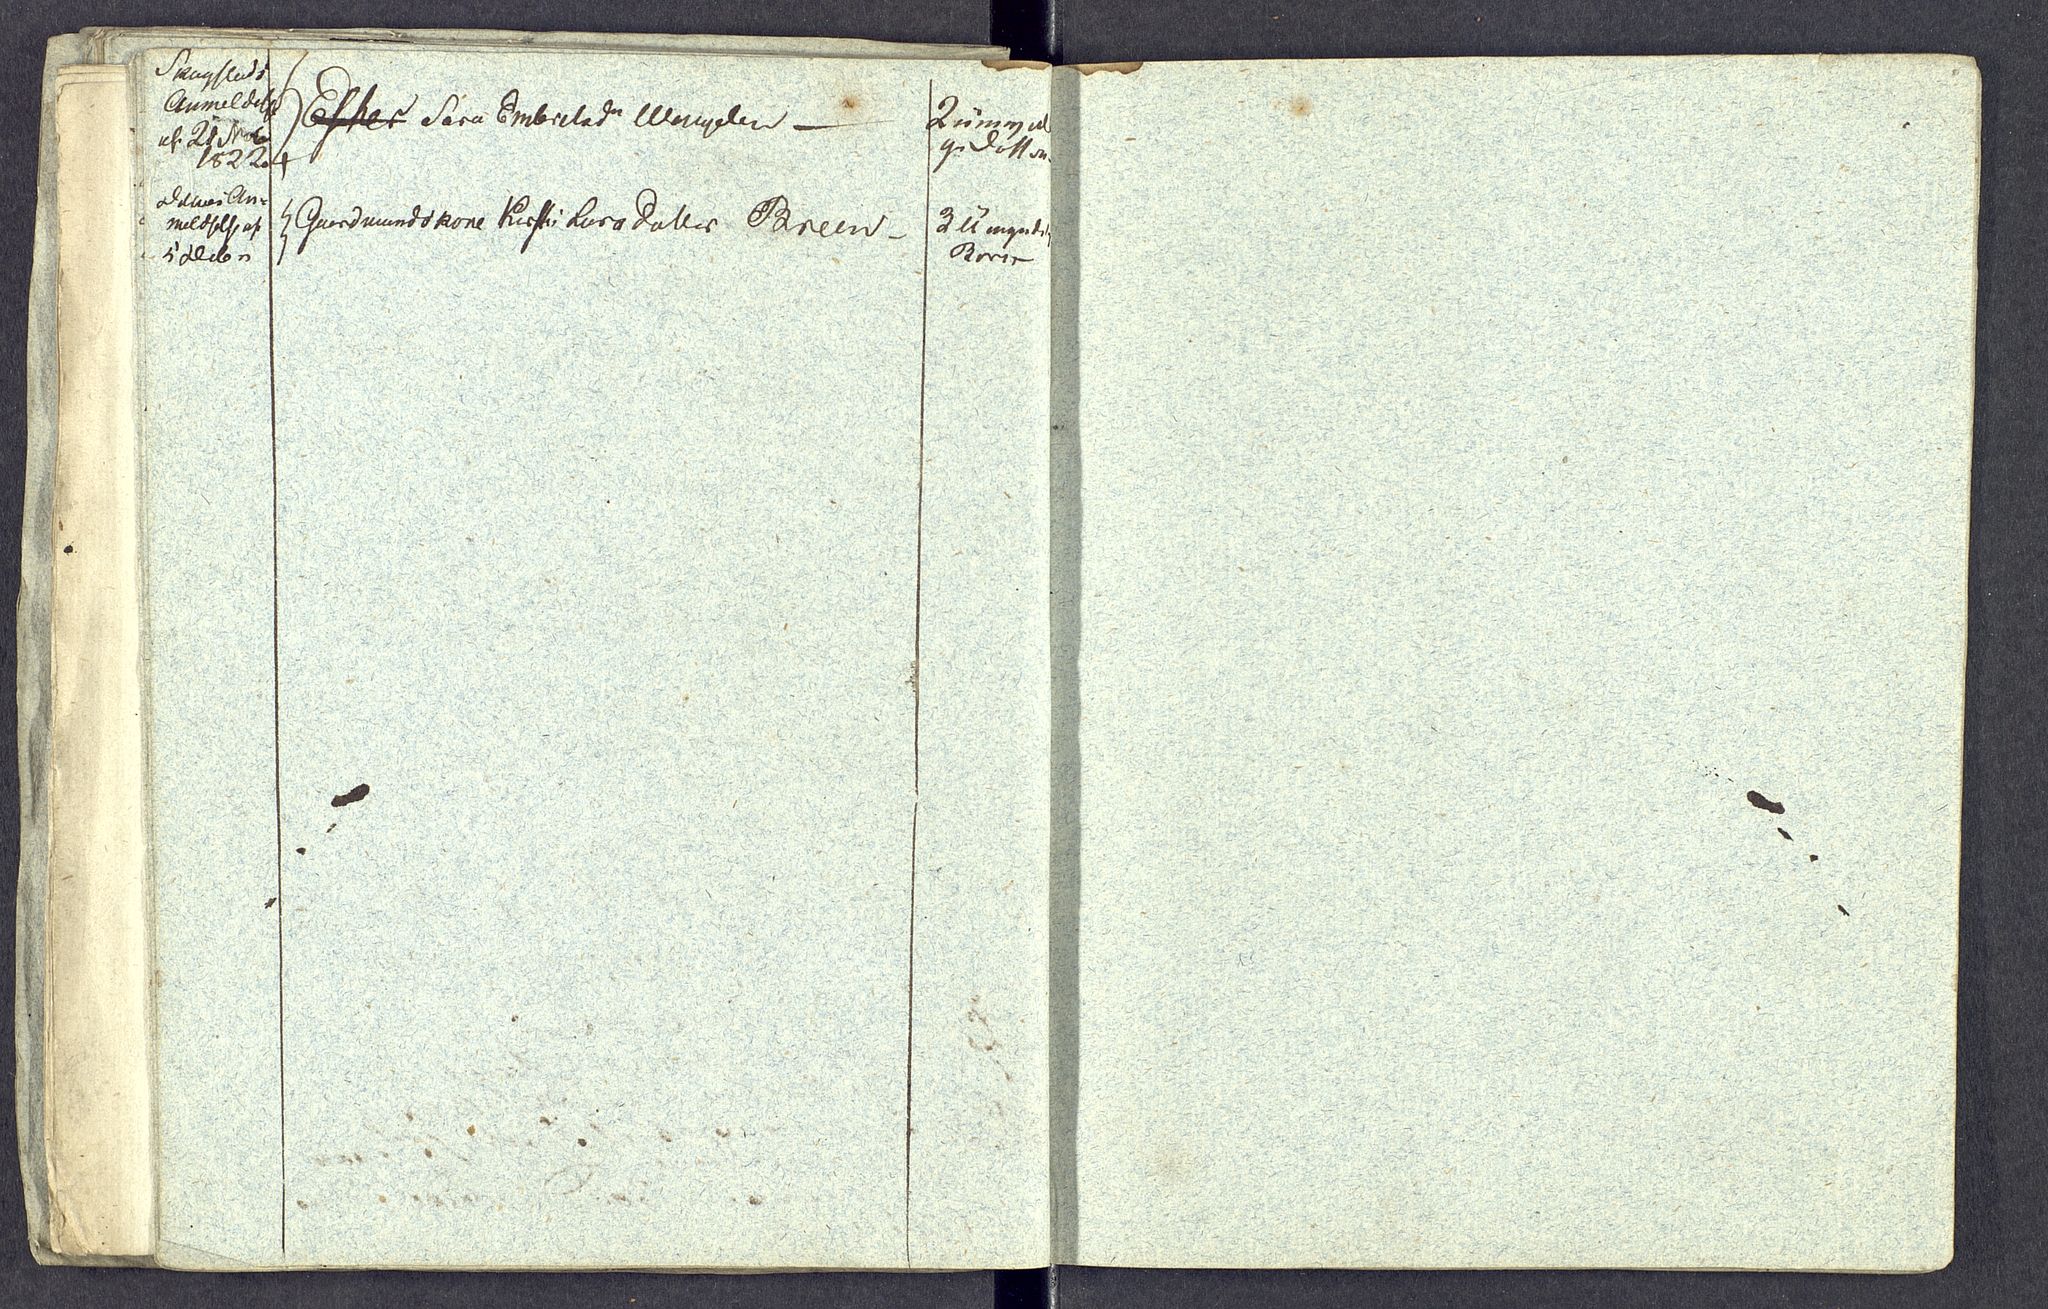 Skugstads
Anmeldelse
af 21 Novb
1822
Efther Sara Embretsdr Wengelen —
2 umyndi
ge Døttre.
dennes An-
meldelse af
5 Debr
Gaardmandskone Kirsti Lars Datter Breen —
3 Umyndige
Børn